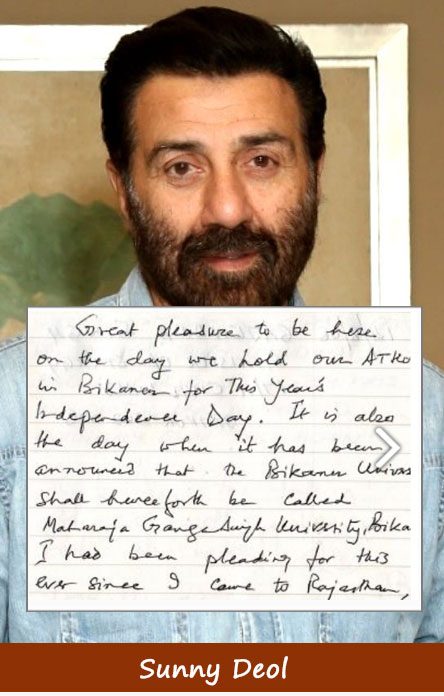 Great pleasure to be here
on the day we hold our AT Ho
in Bikaner for This Year's
Independence Day. It is also
the day when it has been
announced that the Bikaner Univers
shall henceforth be called
Maharaja Ganga Singh University, Bika
I had been pleading for this
ever since I came to Rajasthan,
Sunny Deol